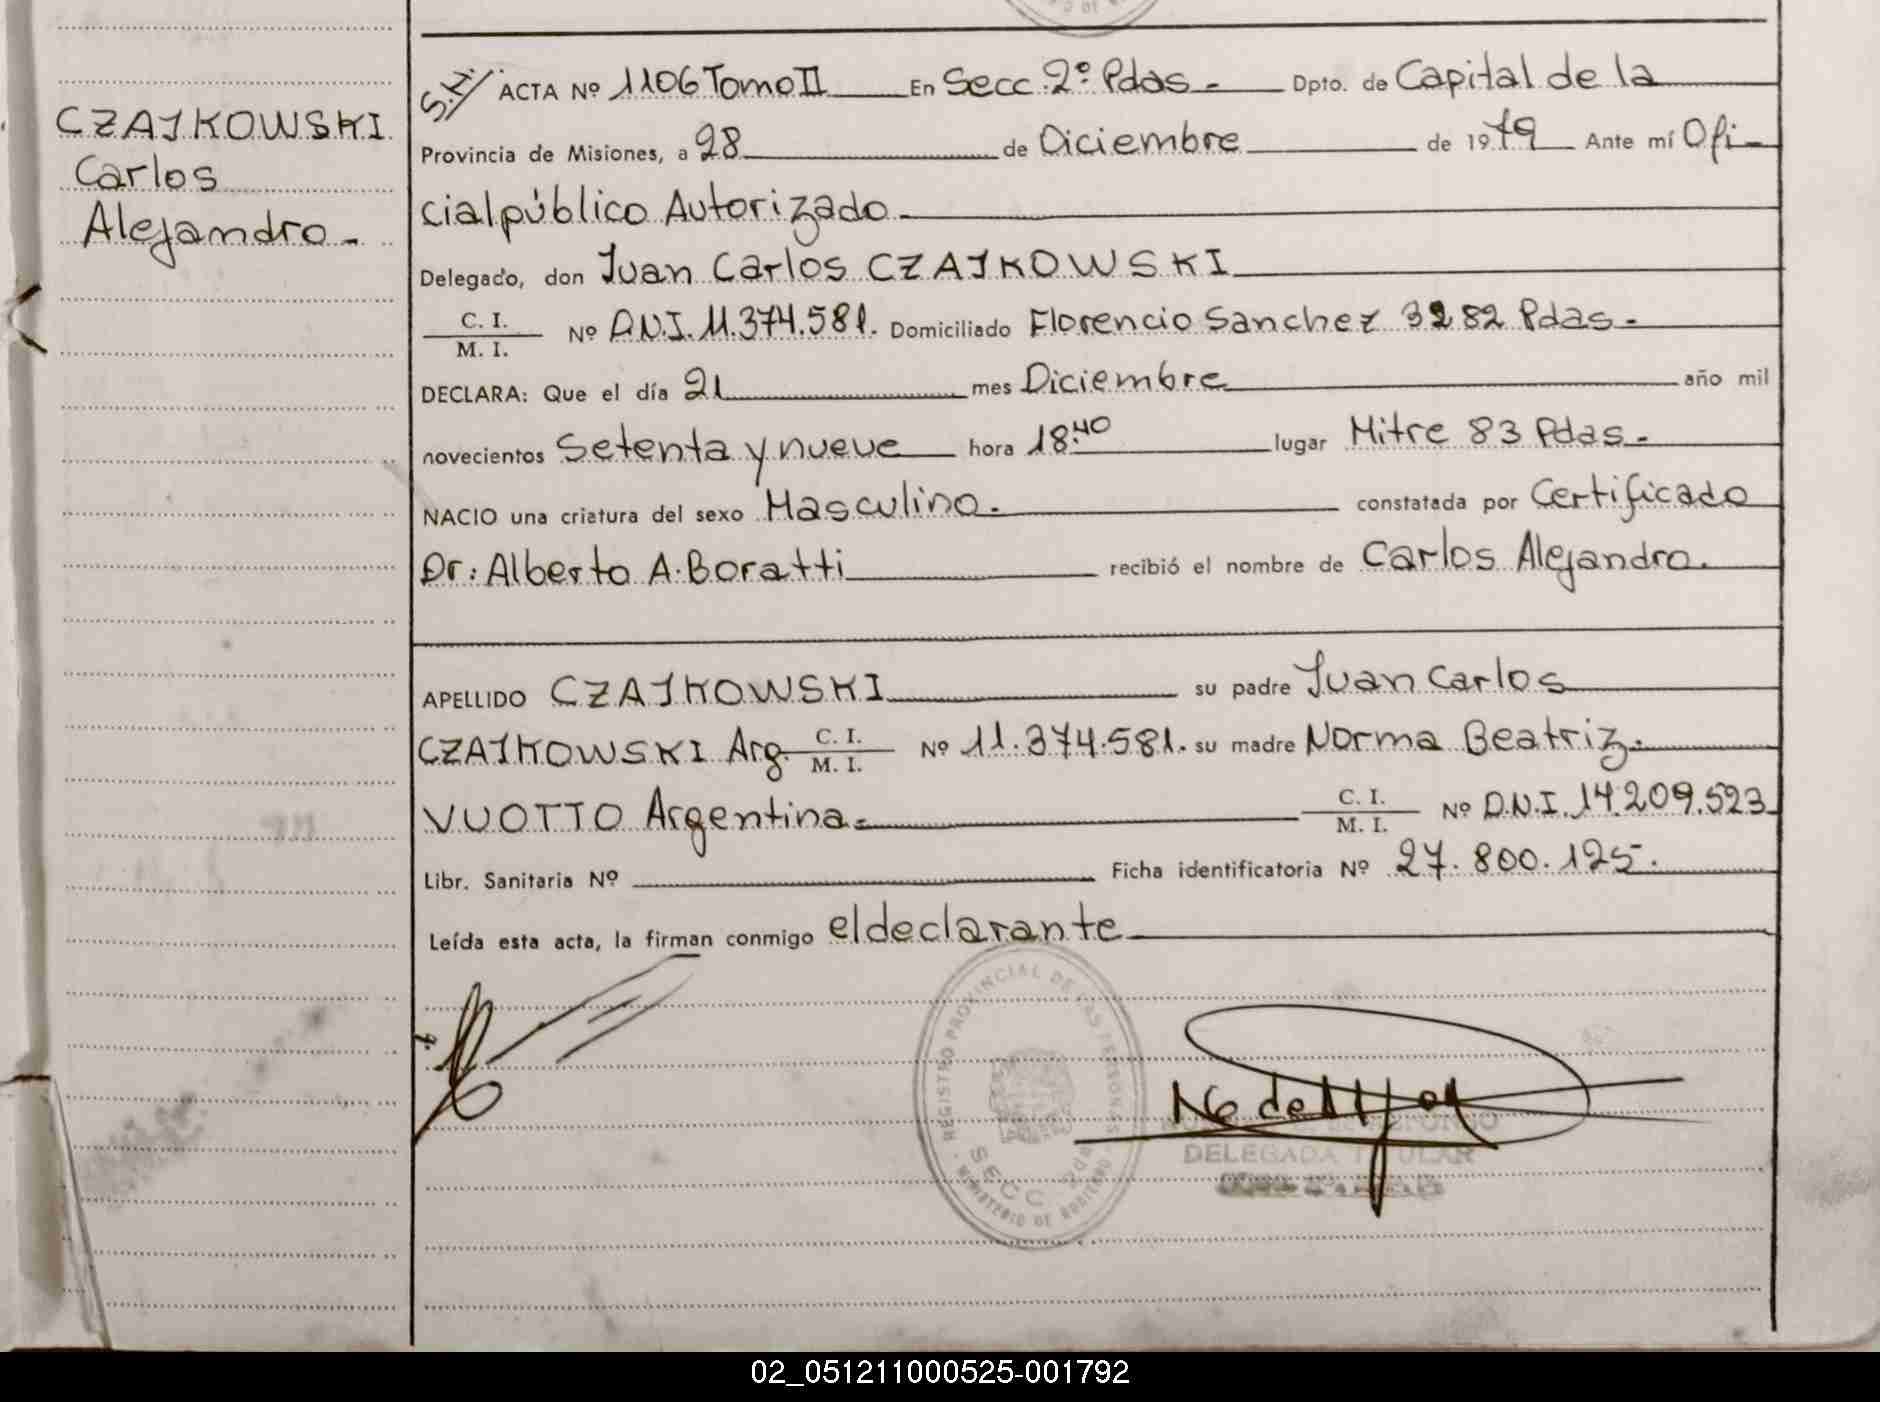 CZAJKOWSKI
Carlos
Alejandro -
S.H/ ACTA Nº 1106 Tomo II En Secc. 2º Pdas - Dpto. de Capital de la
Provincia de Misiones, a 28 de Diciembre de 1979 Ante mí Ofi-
cial público Autorizado -
Delegado, don Juan Carlos CZAJKOWSKI
C. I.
M. I. Nº D.N.I. 11.374.581. Domiciliado Florencio Sanchez 3282 Pdas -
DECLARA: Que el día 21 mes Diciembre año mil
novecientos Setenta y nueve hora 18:40 lugar Mitre 83 Pdas -
NACIO una criatura del sexo Masculino. constatada por Certificado
Dr: Alberto A. Boratti recibió el nombre de Carlos Alejandro.
APELLIDO CZAJKOWSKI su padre Juan Carlos
CZAJKOWSKI Arg. C. I. M. I. Nº 11.374.581. su madre Norma Beatriz -
VUOTTO Argentina - C. I. M. I. Nº D.N.I. 14.209.523
Libr. Sanitaria Nº Ficha identificatoria Nº 27.800.125.
Leída esta acta, la firman conmigo el declarante
REGISTRO PROVINCIAL DE LAS PERSONAS
SECC. 2da
MINISTERIO DE GOBIERNO
DELEGADA TITULAR
02_051211000525-001792